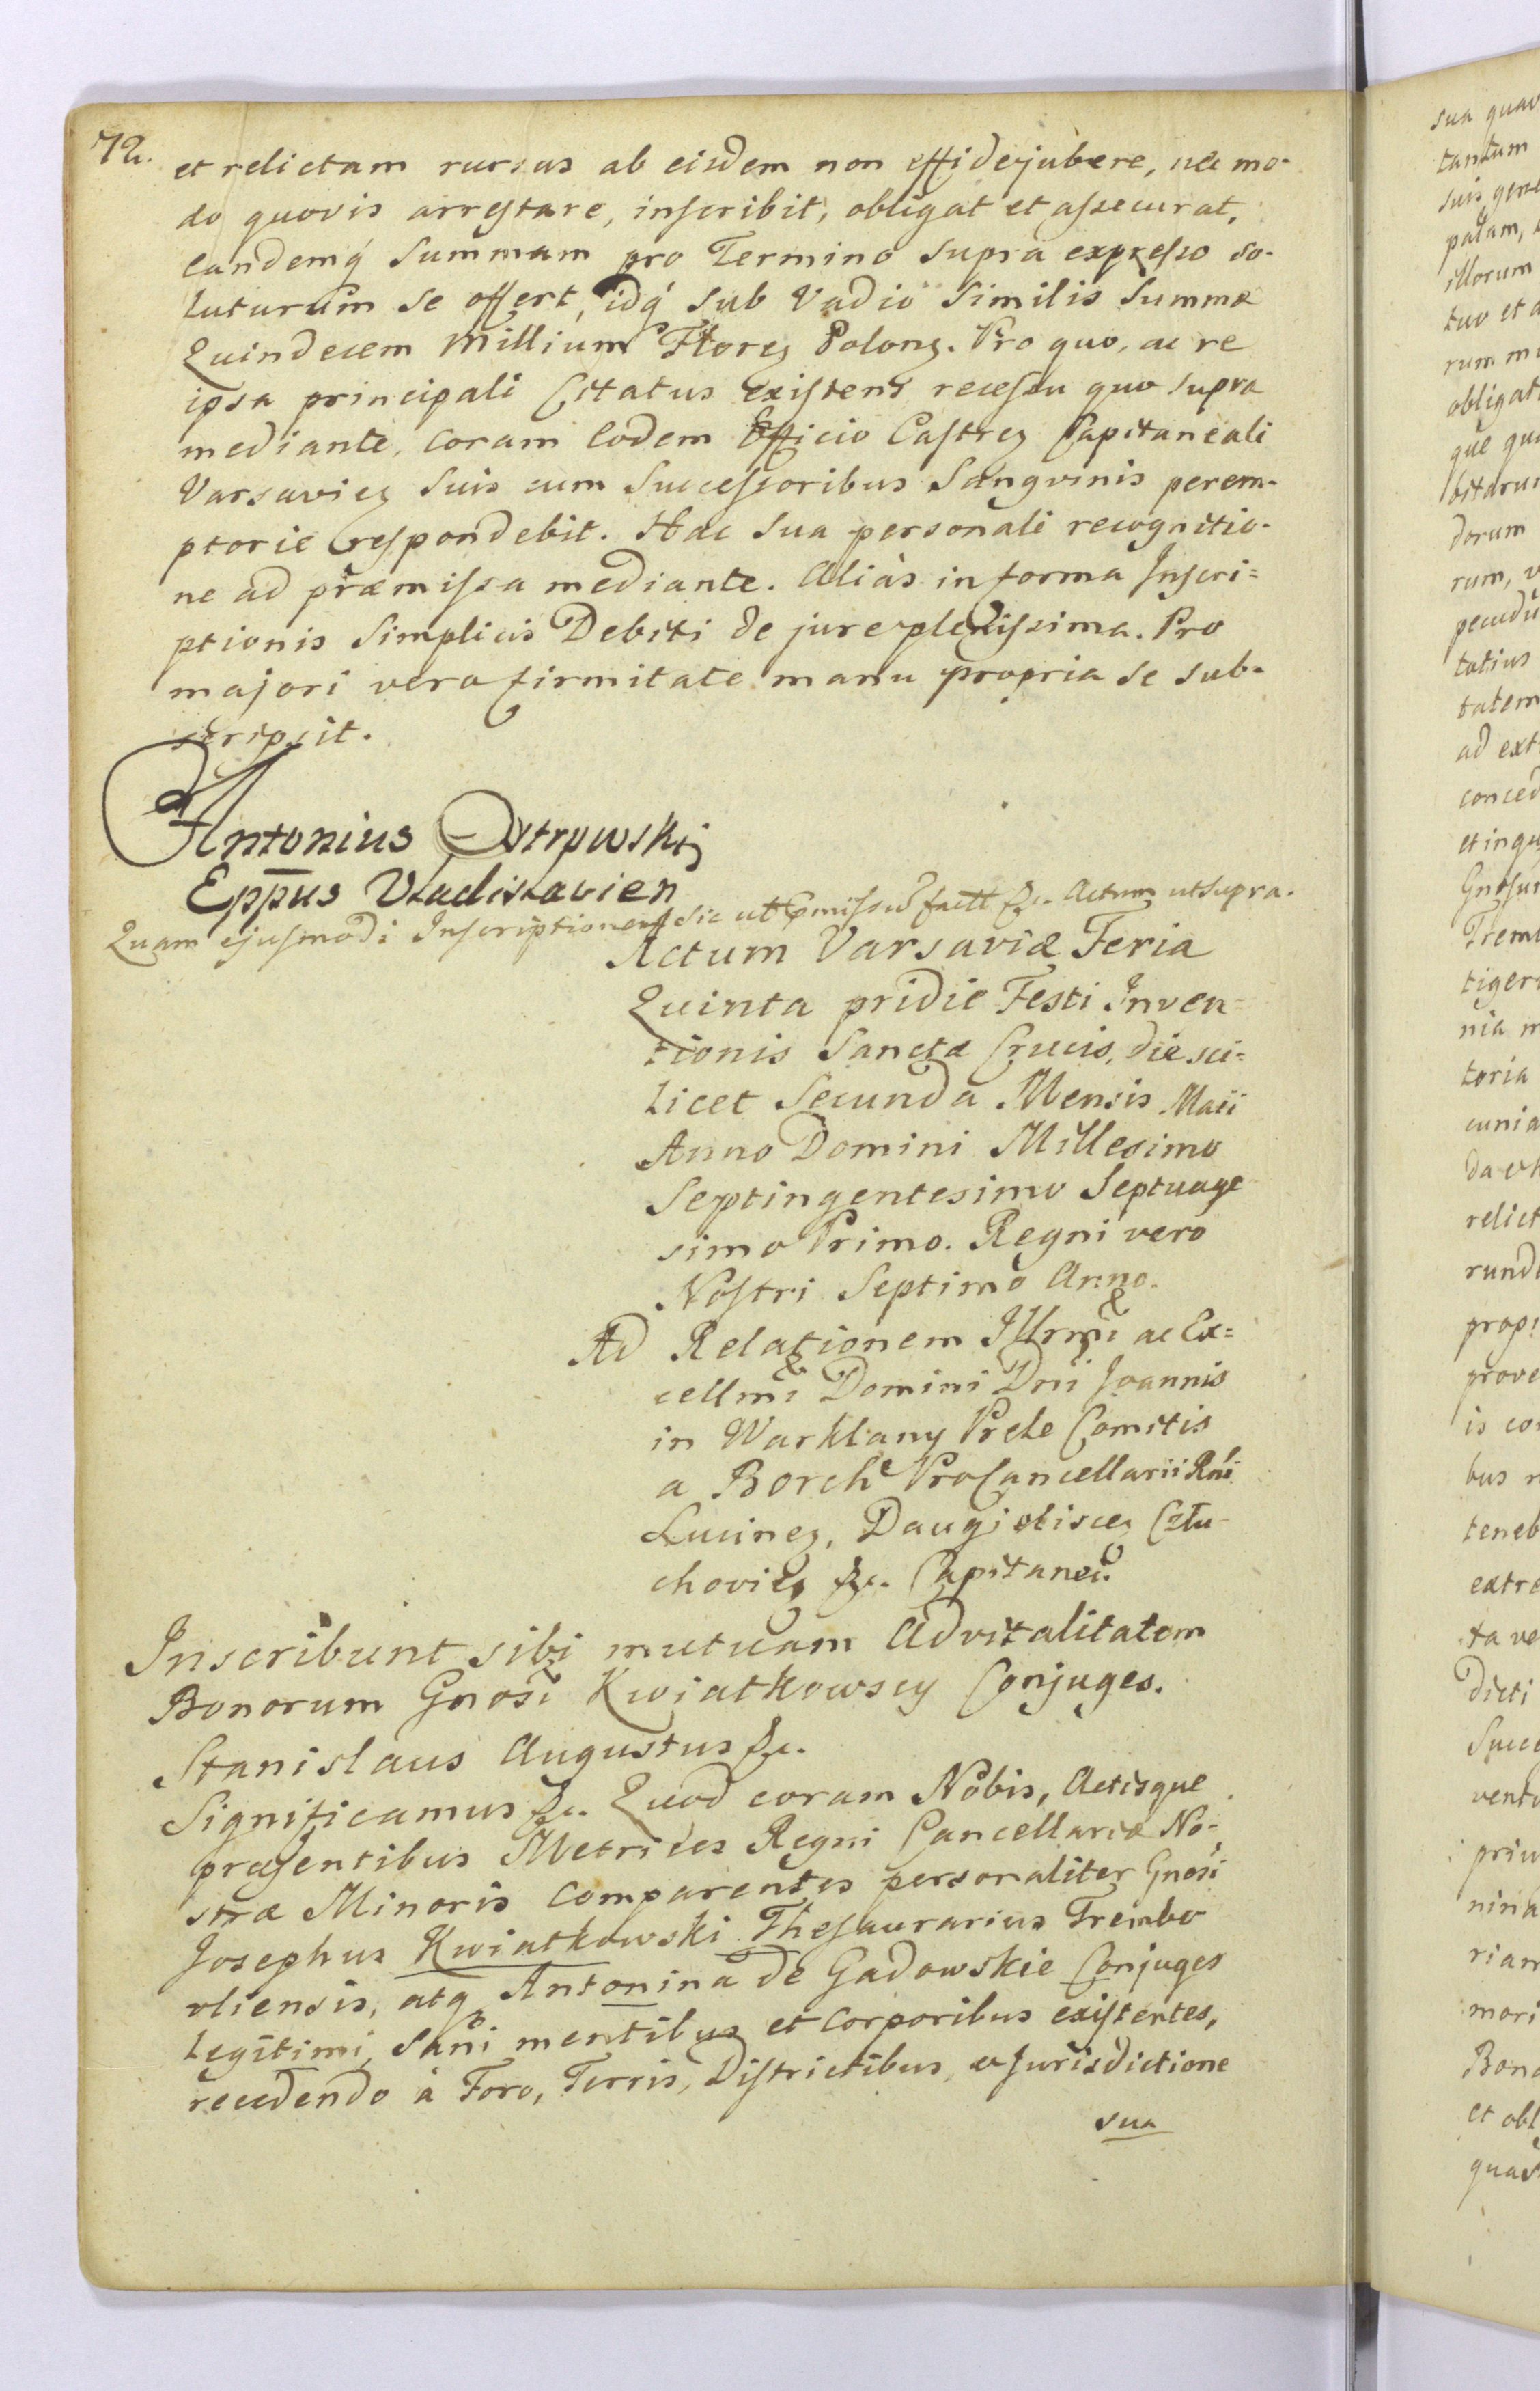 72.
et relictam rursus ab eisdem non effidejubere, nec mo-
do quovis arrestare, inscribit, obligat et assecurat,
eandemq́ Summam pro Termino supra expresso so-
luturum se offert, idq́ sub Vadio similis Summæ
Quindecem Millium Florez Polonz. Pro quo, ac re
ipsa principali Citatus existens recessu quo supra
mediante, coram eodem Officio Castrez Capitaneali
Varsaviez suis cum Successoribus Sangvinis perem-
ptorie respondebit. Hac sua personali recognitio-
ne ad præmissa mediante. Aliàs in forma Inscri=
ptionis Simplicis Debiti de jure plenissima. Pro
majori vero firmitate manu propria se sub-
scripsit.
Antonius Ostrowski
Epp̄us Vladislavien
Quam ejusmodi Inscriptionem sic ut &c. Actum ut supra.
Actum Varsaviæ Feria
Quinta pridie Festi Inven-
tionis Sanctæ Crucis, die sci=
licet Secunda Mensis Maii
Anno Domini Millesimo
Septingentesimo Septuage
simo Primo. Regni vero
Nostri Septimo Anno.
Ad Relationem Illrmi ac Ex=
cellmi Domini Dni Joannis
in Warklany Prele Comitis
a Borch ProCancellarii Rni
Lucinez, Człu-
choviez &c. Capitanei.
Inscribunt sibi mutuam Advitalitatem
Bonorum Gnosi Kwiatkowscy Conjuges.
Stanislaus Augustus &c.
Significamus &c. Quod coram Nobis, Actisque
præsentibus Metrices Regni Cancellariæ No-
stræ Minoris comparentes personaliter Gnosi
Josephus Kwiatkowski Thesaurarius Trembo
vliensis, atq Antonina de Gadowskie Conjuges
legitimi, sani mentibus et corporibus existentes,
recedendo à Foro, Terris, Districtibus, et Jurisdictione
sua
sua quav
tantum
suis gene
palam,
illorum
tuo et a
rum m
obligat
que qu
bitarum
dorum
rum, v
pecudu
totius
tatem
ad ext
conced
et inqu
Gnosu
Tremb
tiger
nia m
toria
cunia
da et
relict
rundo
propr
prove
is co
bus r
teneb
extra
ta ve
dicti
Succe
ventu
priu
nina
riam
mori
Bono
et obl
quas